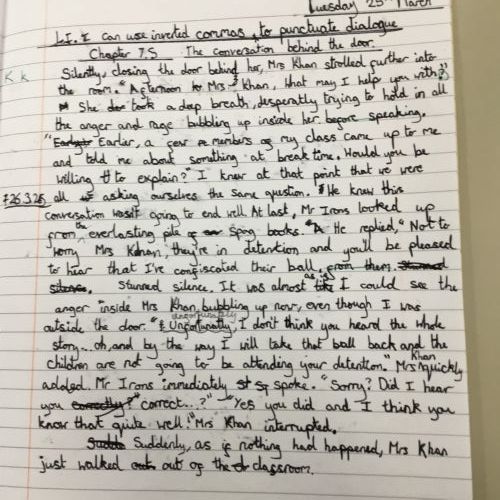 Tuesday 25th March
L.I. I can use inverted commas to punctuate dialogue
Chapter 7.5 The conversation behind the door.
Silently, closing the door behind her, Mrs Khan strolled further into
the room. "Afternoon Mrs Khan, what may I help you with?"
She took a deep breath, desperatly trying to hold in all
the anger and rage bubbling up inside her before speaking.
"Earlier, a few members of my class came up to me
and told me about something at break time. Would you be
willing to explain?" I knew at that point that we were
26.3.25 all asking ourselves the same question. He knew this
conversation wasn't going to end well. At last, Mr Irons looked up
from the everlasting pile of books. He replied, "Not to
worry Mrs Khan, they're in detention and you'll be pleased
to hear that I've confiscated their ball.
Stunned silence. It was almost as if I could see the
anger inside Mrs Khan bubbling up now, even though I was
outside the door. "Unfortunatly, I don't think you heard the whole
story... oh, and by the way I will take that ball back and the
children are not going to be attending your detention." Mrs Khan quickly
added. Mr Irons immediately spoke. "Sorry? Did I hear
you correct...?" "Yes you did and I think you
know that quite well!" Mrs Khan interrupted.
Suddenly, as if nothing had happened, Mrs Khan
just walked out of the classroom.